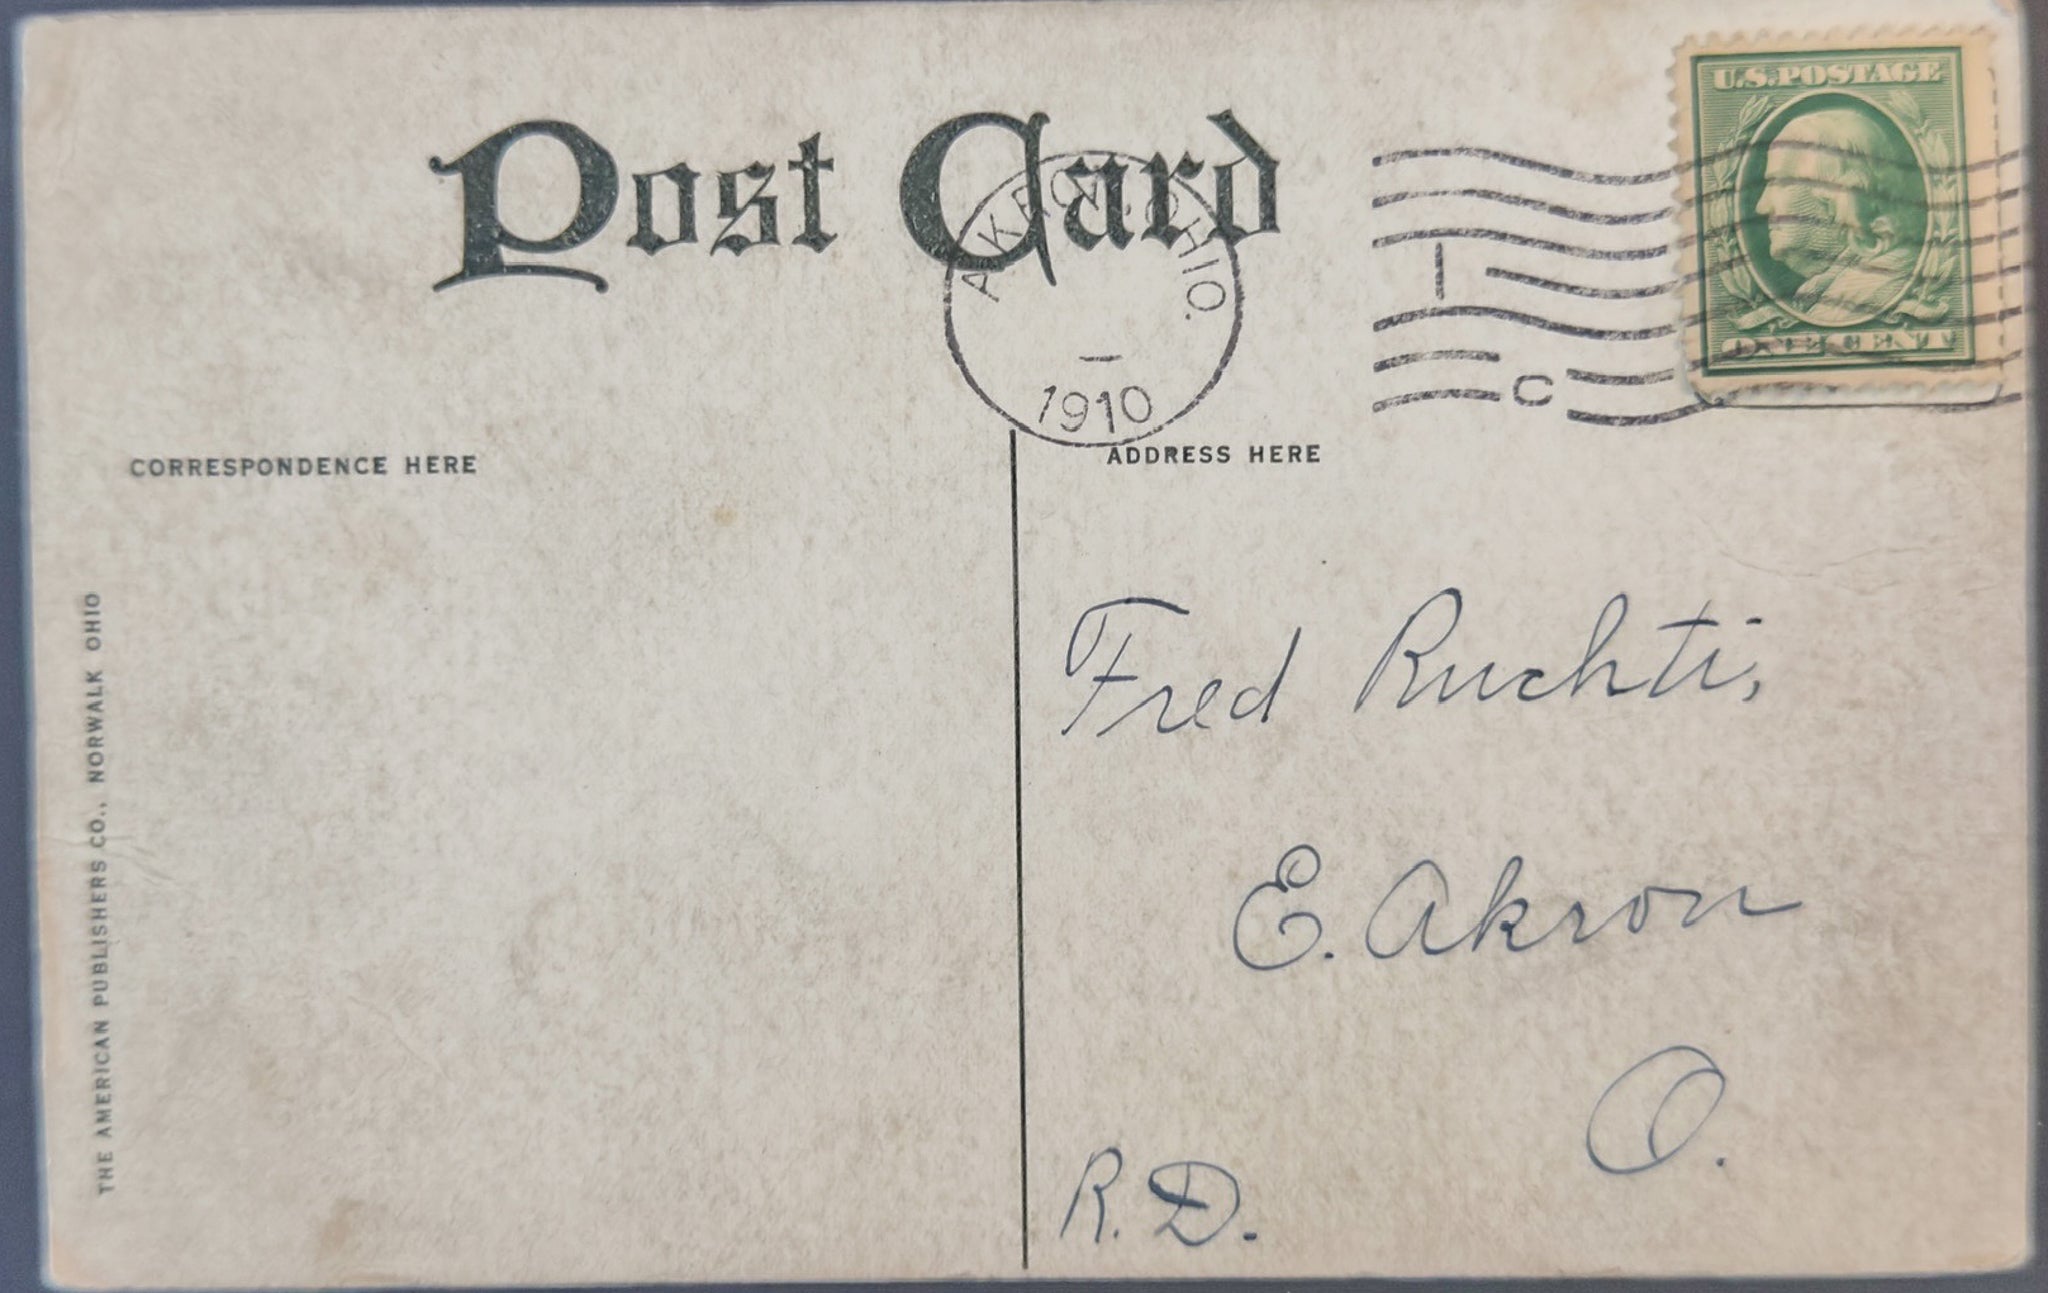 Post Card
AKRON, OHIO.
1910
1
C
U.S. POSTAGE
ONE CENT
CORRESPONDENCE HERE
ADDRESS HERE
THE AMERICAN PUBLISHERS CO., NORWALK OHIO
Fred Ruchti,
E. Akron
O.
R.D.